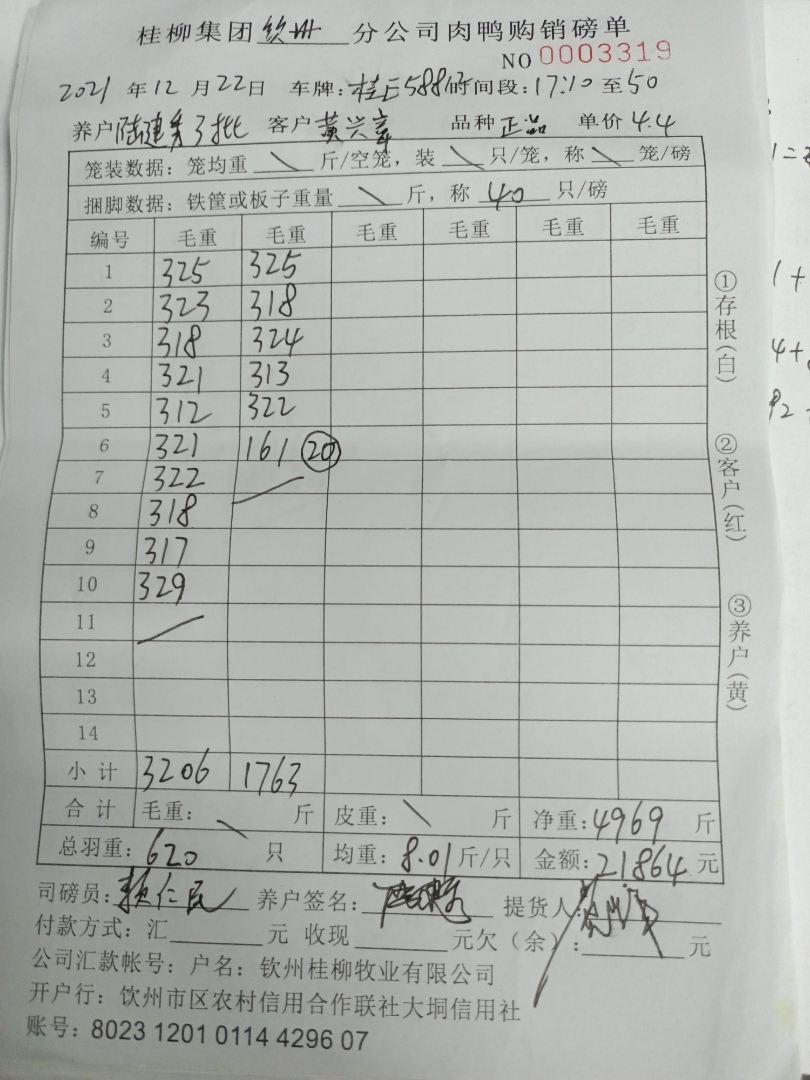 桂柳集团钦州分公司肉鸭购销磅单
NO 0003319
2021年12月22日 车牌：桂E588 时间段：17:10至50
养户 陆建 3批 客户 黄兴 品种 正品 单价 4.4
笼装数据：笼均重 \ 斤/空笼，装 \ 只/笼，称 \ 笼/磅
捆脚数据：铁筐或板子重量 \ 斤，称 40 只/磅
编号 毛重 毛重 毛重 毛重 毛重 毛重
1 325 325
2 323 318
3 318 324
4 321 313
5 312 322
6 321 161 20
7 322
8 318
9 317
10 329
11
12
13
14
小计 3206 1763
合计 毛重：\ 斤 皮重：\ 斤 净重：4969 斤
总羽重：620 只 均重：8.01 斤/只 金额：21864 元
司磅员：赖仁民 养户签名： 提货人：
付款方式：汇 元 收现 元欠（余）： 元
公司汇款帐号：户名：钦州桂柳牧业有限公司
开户行：饮州市区农村信用合作联社大垌信用社
账号：8023 1201 0114 4296 07
①存根（白）
②客户（红）
③养户（黄）
1+
4+